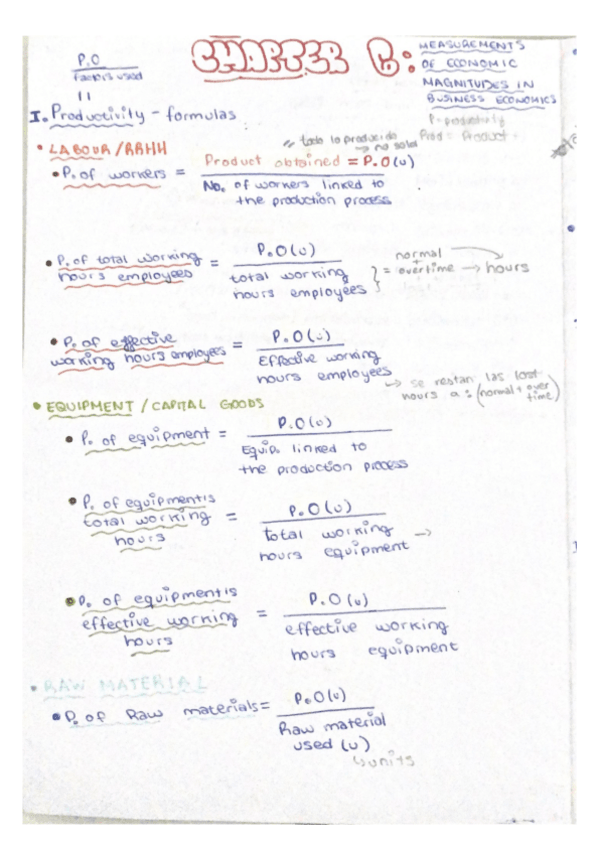 P.O
Factors used
||
CHAPTER 6:
MEASUREMENTS
OF ECONOMIC
MAGNITUDES IN
BUSINESS ECONOMICS
P = productivity
Prod = Product
I. Productivity - formulas
• LABOUR / RRHH
" todo lo producido
→ no solo
• P. of workers = Product obtained = P.O (u)
No. of workers linked to
the production process
• P. of total working
hours employees = P.O (u)
total working
hours employees
} = normal
+
overtime → hours
• P. of effective
working hours employees = P.O (u)
Effective working
hours employees
→ se restan las lost
hours a : (normal + over
time)
• EQUIPMENT / CAPITAL GOODS
• P. of equipment = P.O (u)
Equip. linked to
the production process
• P. of equipment's
total working
hours = P.O (u)
total working
hours equipment →
• P. of equipment's
effective working
hours = P.O (u)
effective working
hours equipment
• RAW MATERIAL
• P. of Raw materials = P.O (u)
Raw material
used (u)
↳ units